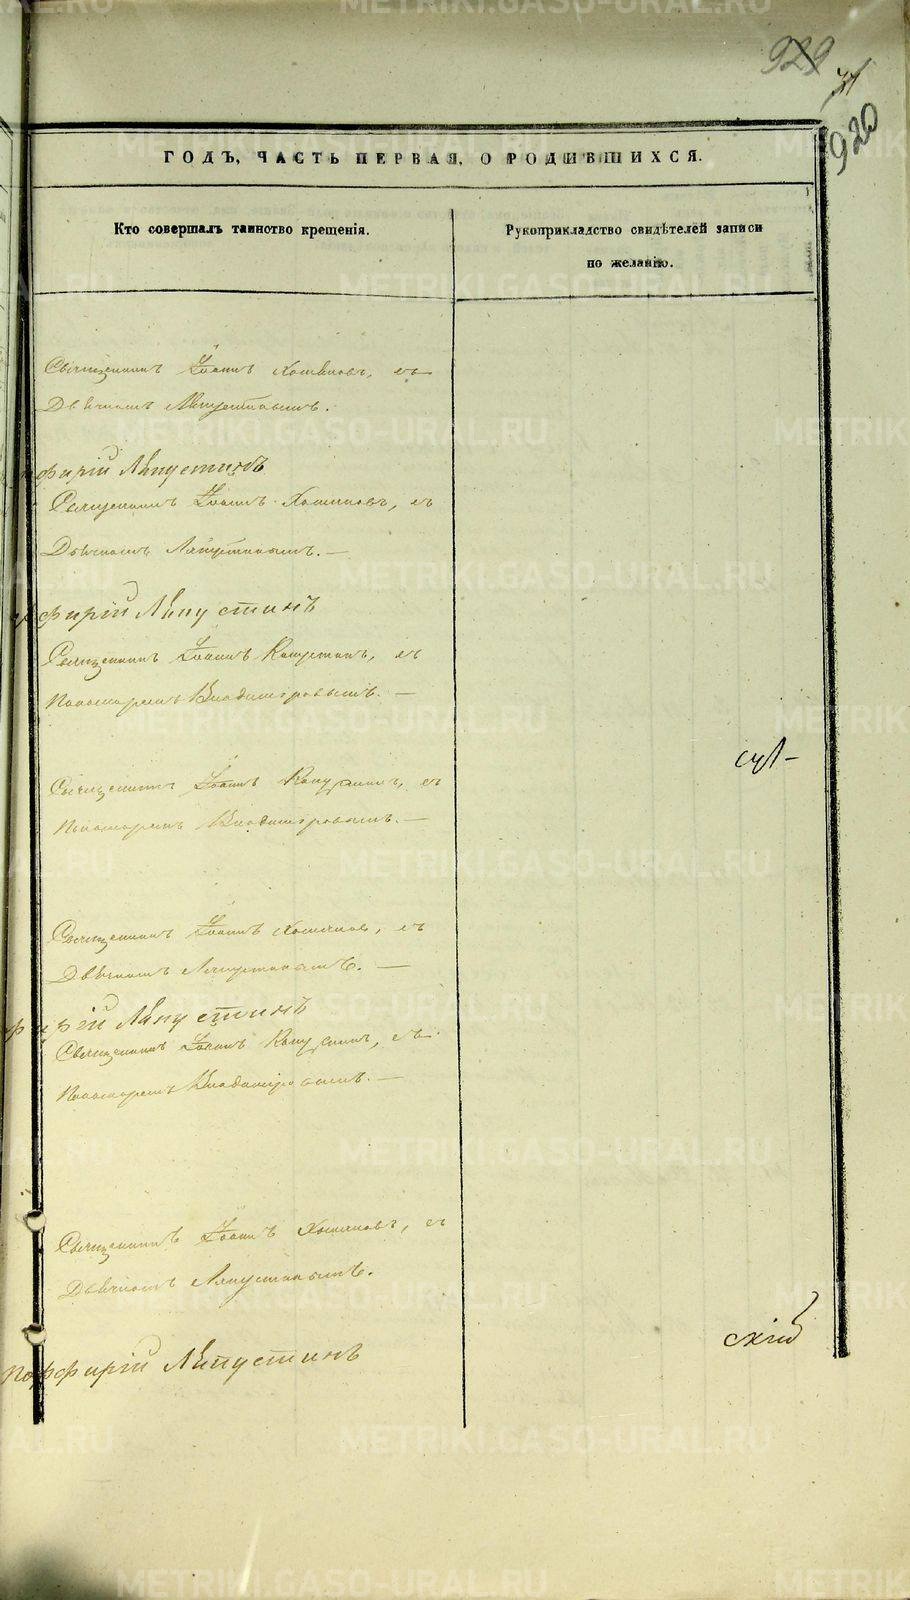 929
31
920
ГОДЪ, ЧАСТЬ ПЕРВАЯ, О РОДИВШИХСЯ.
Кто совершалъ таинство крещенія.
Рукоприкладство свидѣтелей записи
по желанію.
Священникъ Іоаннъ Хотяновъ, съ
Дьячкомъ Ляпустинымъ.
фирій Ляпустинъ
Священникъ Іоаннъ Хотяновъ, съ
Дьячкомъ Ляпустинымъ. —
рфирій Ляпустинъ
Священникъ Іоаннъ Капустинъ, съ
Пономаремъ Владимировымъ. —
Священникъ Іоаннъ Капустинъ, съ
Пономаремъ Владимировымъ. —
Священникъ Іоаннъ Хотяновъ, съ
Дьячкомъ Ляпустинымъ. —
фирій Ляпустинъ
Священникъ Іоаннъ Капустинъ, съ
Пономаремъ Владимировымъ. —
Священникъ Іоаннъ Хотяновъ, съ
Дьячкомъ Ляпустинымъ.
Порфирій Ляпустинъ
METRIKI.GASO-URAL.RU